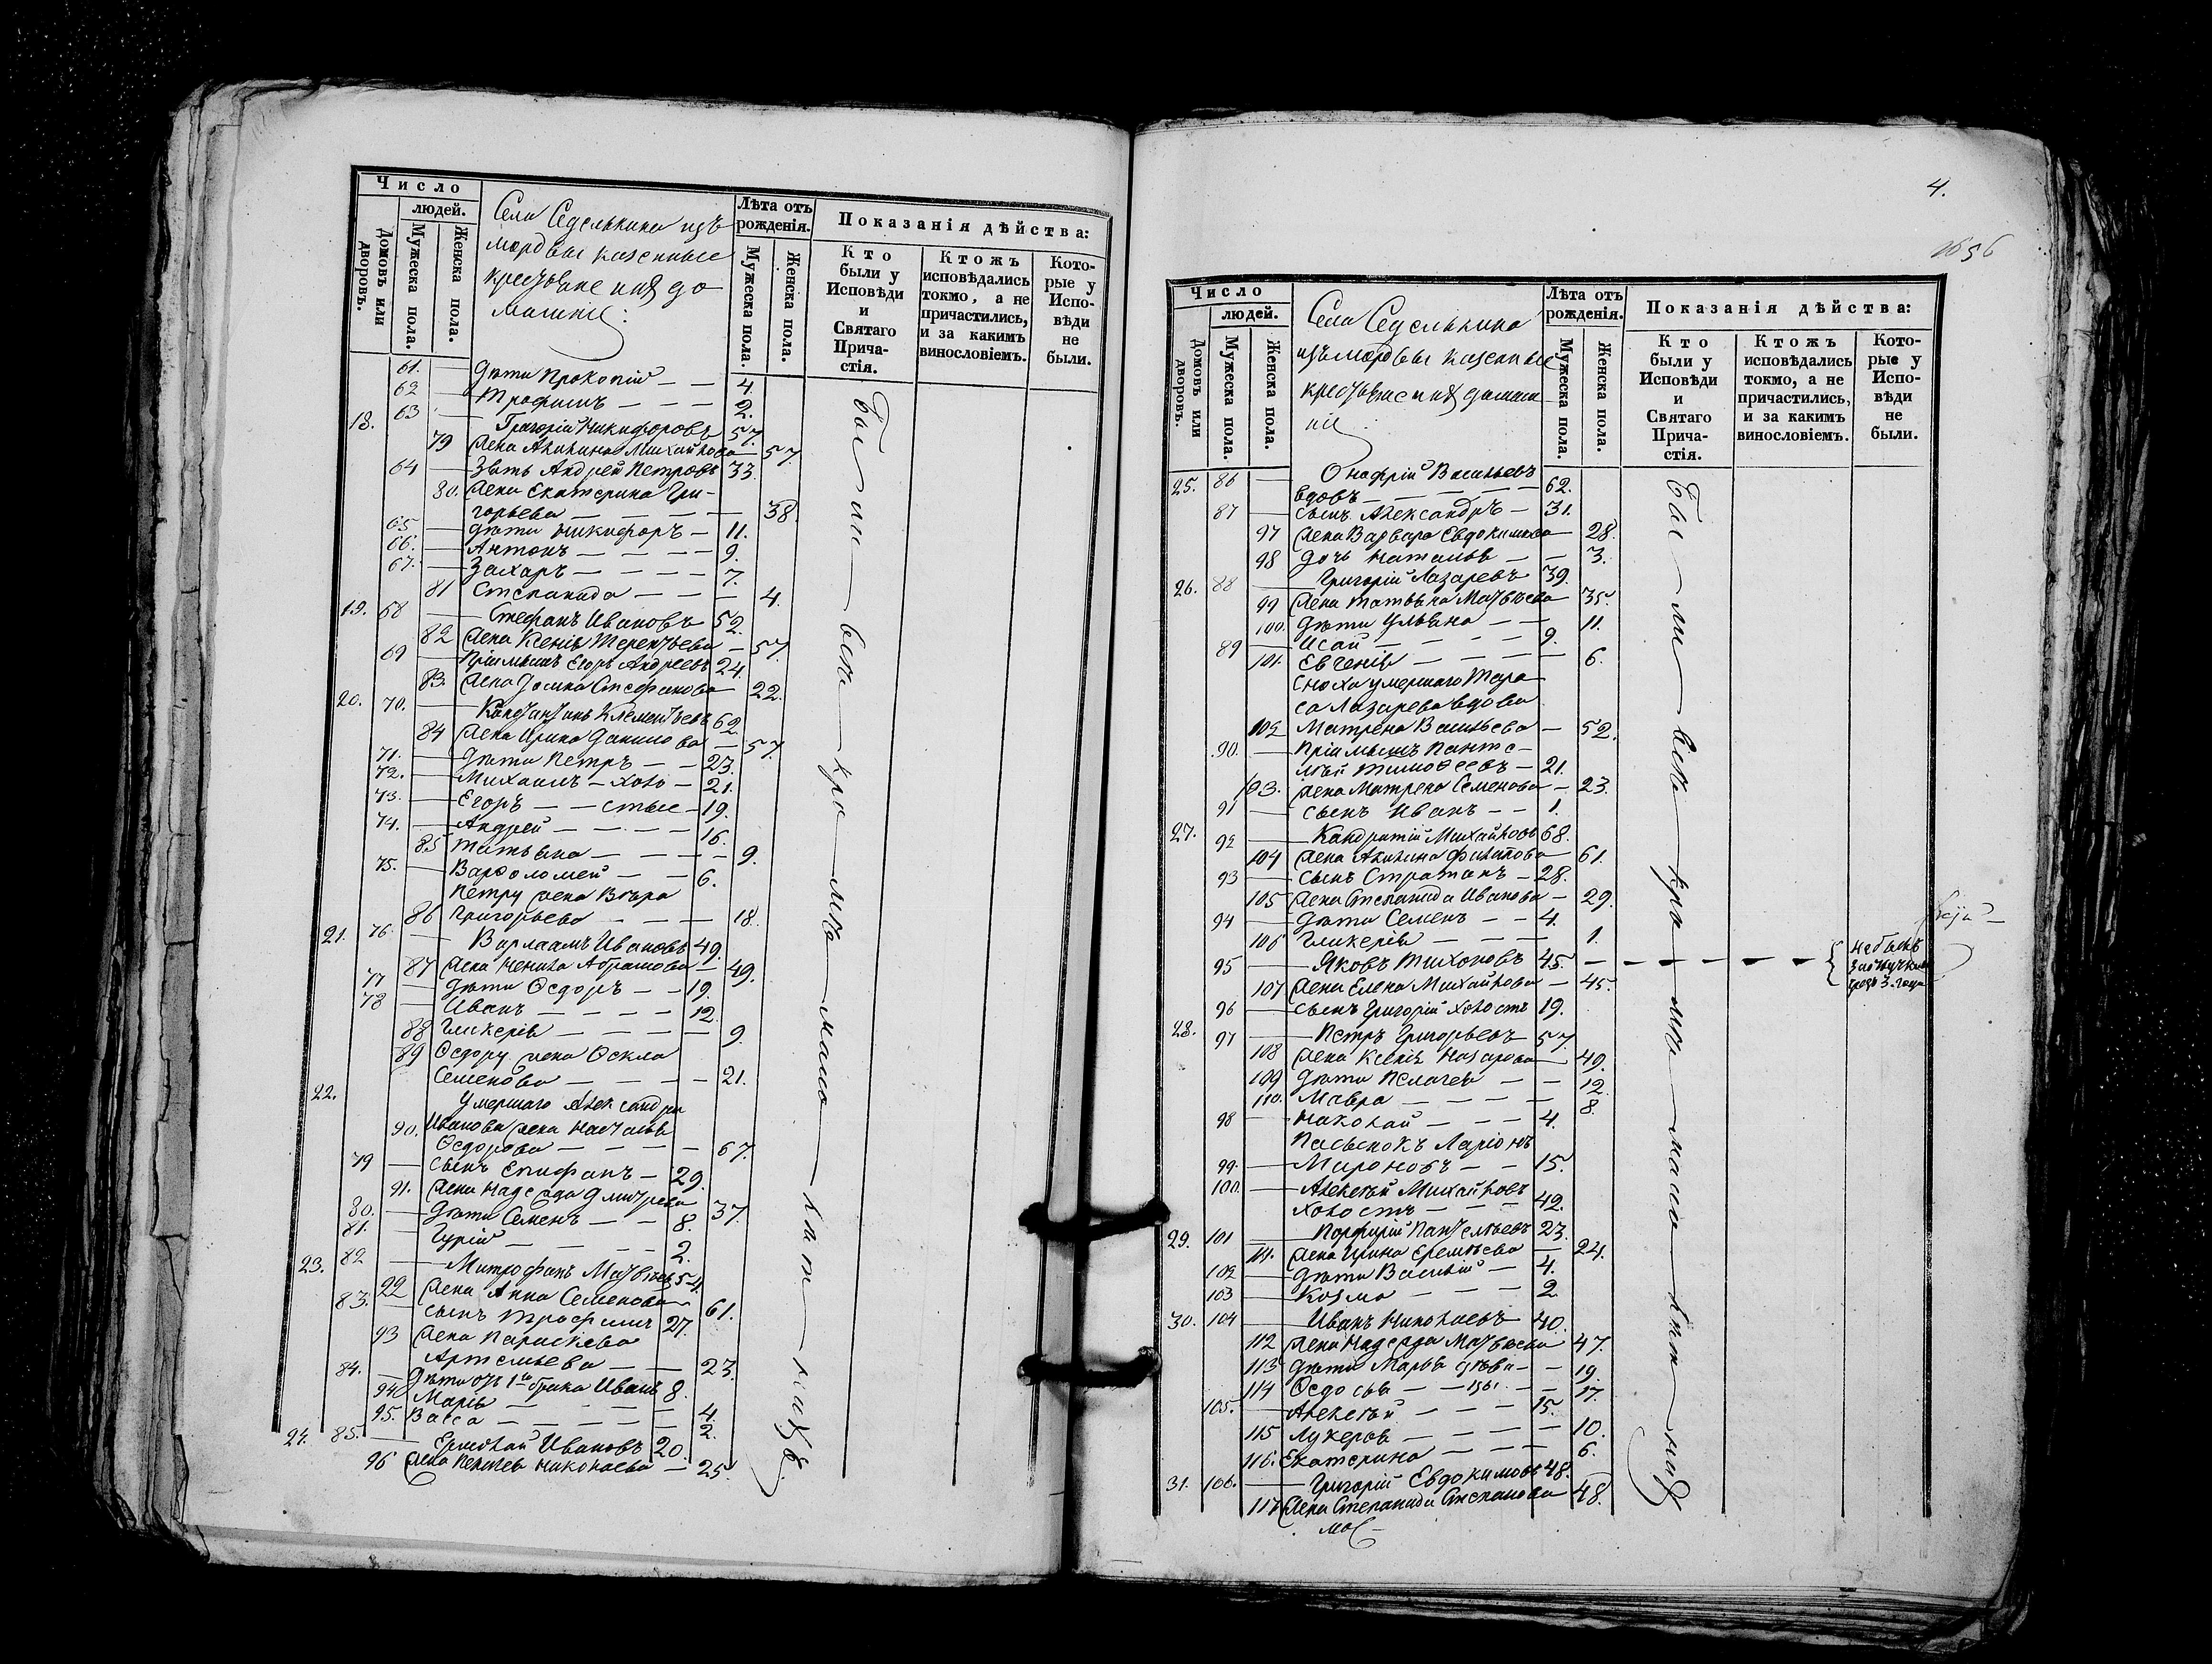 Число
людей.
Домовъ или дворовъ.
Мужеска пола.
Женска пола.
Села Седелькина изъ
мордвы казенные
крестьяне и ихъ до
машние:
Лѣта отъ
рожденія.
Мужеска пола.
Женска пола.
Показанія дѣйства:
Кто
были у
Исповѣди
и
Святаго
Прича-
стія.
Ктожъ
исповѣдались
токмо, а не
причастились,
и за какимъ
винословіемъ.
Кото-
рые у
Испо-
вѣди
не
были.
61. Дѣти Прокопій 4.
62 Трофимъ 2.
18. 63 Григорій Никифоровъ 57.
79 жена Акилина Михайлова 57.
64 Зять Андрей Петровъ 33.
80. жена Екатерина Гри-
горьева 38.
65 дѣти Никифоръ 11.
66. Антонъ 9.
67. Захаръ 7.
81 Степанида 4.
19. 68 Стефанъ Ивановъ 52.
82 жена Ксенія Терентьева 57.
69 Пріимышъ Егоръ Андреевъ 24.
83. жена Домна Стефанова 22.
20. 70. Константинъ Клементьевъ 62
84 жена Ирина Данилова 57.
71. Дѣти Петръ 23.
72. Михаилъ холо 21.
73. Егоръ стые 19.
74. Андрей 16.
85 Татьяна 9.
75. Варѳоломей 6.
Петру жена Вѣра
86 Григорьева 18.
21. 76. Варлаамъ Ивановъ 49.
87 жена Ненила Абрамова 49.
77 Дѣти Ѳедоръ 19.
78 Иванъ 12.
88 Гликерія 9.
89 Ѳедору жена Ѳекла
Семенова 21.
22. Умершаго Александра
90. Иванова жена Наталья
Ѳедорова 67.
79 сынъ Епифанъ 29.
91. жена Надежда Дмитрева 37.
80. Дѣти Семенъ 8.
81. Гурій 2.
23. 82 Митрофанъ Матвѣевъ 54.
92 жена Анна Семенова 61.
83. сынъ Трофимъ 27.
93 жена Параскева
Артемьева 23.
84. Дѣти отъ 1го брака Иванъ 8.
94 Марія 4.
95. Васса 2.
24. 85. Ермолай Ивановъ 20.
96 жена Пелагея Николаева 25.
4.
1656
Число
людей.
Домовъ или дворовъ.
Мужеска пола.
Женска пола.
Села Седелькина
изъ мордвы казенные
крестьяне и ихъ домаш
ніе
Лѣта отъ
рожденія.
Мужеска пола.
Женска пола.
Показанія дѣйства:
Кто
были у
Исповѣди
и
Святаго
Прича-
стія.
Ктожъ
исповѣдались
токмо, а не
причастились,
и за какимъ
винословіемъ.
Кото-
рые у
Испо-
вѣди
не
были.
25. 86 Онафрій Васильевъ
вдовъ 62.
87 сынъ Александръ 31.
97 жена Варвара Евдокимова 28.
98 дочь Наталья 3.
26. 88 Григорій Лазаревъ 39.
99 жена Татьяна Матвѣева 35.
100. Дѣти Ульяна 11.
89 Исай 9.
101. Евгенія 6.
Сноха умершаго Тара
са Лазарева вдова
102 Матрена Васильева 52.
90. Пріимышъ Панте-
лѣй Тимоѳеевъ 21.
103. жена Матрена Семенова 23.
91 сынъ Иванъ 1.
27. 92 Кандратій Михайловъ 68.
104 жена Акилина Филатова 61.
93 сынъ Стратонъ 28.
105 жена Степанида Иванова 29.
94 Дѣти Семенъ 4.
106 Гликерія 1.
95 Яковъ Тихоновъ 45. не былъ
107 жена Елена Михайлова 45.
96 сынъ Григорій холостъ 19.
28. 97 Петръ Григорьевъ 57.
108 жена Ксенія Назарова 49.
109 Дѣти Пелагея 12.
110. Мавра 8.
98 Николай 4.
Пасынокъ Ларіонъ
99. Мироновъ 15.
100. Алексѣй Михайловъ
холостъ 42.
29. 101 Порфирій Пантелѣевъ 23.
111. жена Ирина Еремѣева 24.
102 Дѣти Василій 4.
103 Козма 2.
30. 104 Иванъ Николаевъ 40.
112 жена Надежда Матвѣева 47.
113 Дѣти Марья 19.
114 Ѳедосья 17.
105. Алексѣй 15.
115 Лукерья 10.
116. Екатерина 6.
31. 106. Григорій Евдокимовъ 48.
117 жена Степанида Степанова 48.